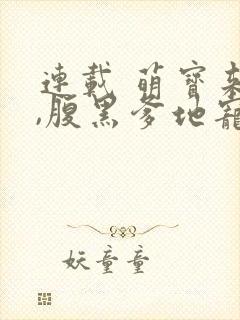 連載 萌寶
,腹黑爹地寵
妖童童